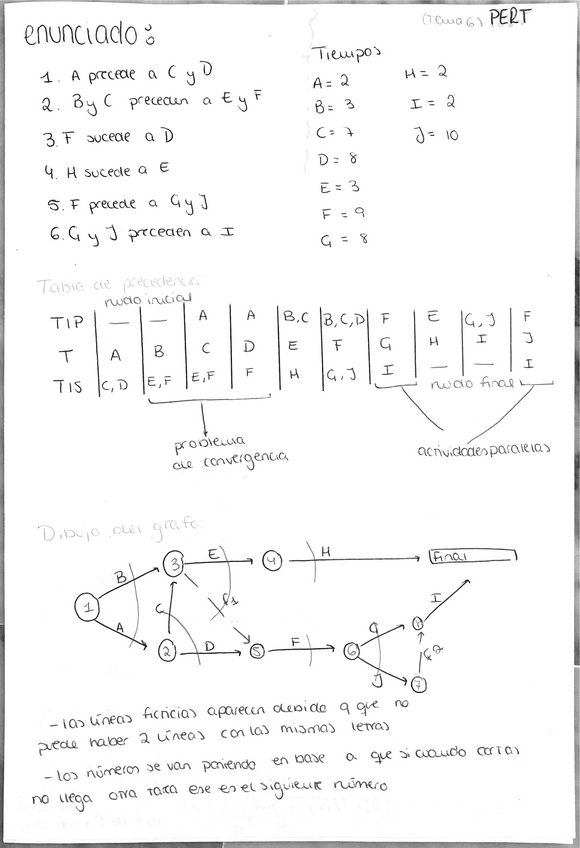 (Tema 6) PERT
enunciado:
1. A precede a C y D
2. B y C preceden a E y F
3. F sucede a D
4. H sucede a E
5. F precede a G y J
6. G y J preceden a I
Tiempos
A = 2
B = 3
C = 7
D = 8
E = 3
F = 9
G = 8
H = 2
I = 2
J = 10
Tabla de precedencia:
nudo inicial
TIP | — | — | A | A | B,C | B,C,D | F | E | G,J | F
T | A | B | C | D | E | F | G | H | I | J
TIS | C,D | E,F | E,F | F | H | G,J | I | — | — | I
nudo final
problema
de convergencia
actividades paralelas
Dibujo del grafo:
B E H Final
1 3 4
A C f1 G I
2 D 5 F 6 8
J f2
7
- las líneas ficticias aparecen debido a que no
puede haber 2 líneas con las mismas letras
- los números se van poniendo en base a que si cuando cortas
no llega otra raya ese es el siguiente número